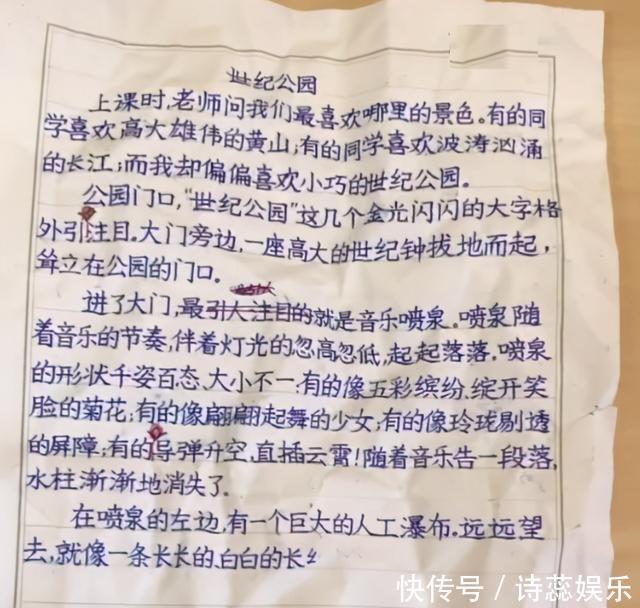 世纪公园
上课时,老师问我们最喜欢哪里的景色。有的同
学喜欢高大雄伟的黄山;有的同学喜欢波涛汹涌
的长江;而我却偏偏喜欢小巧的世纪公园。
公园门口,“世纪公园”这几个金光闪闪的大字格
外引注目。大门旁边,一座高大的世纪钟拔地而起,
耸立在公园的门口。
进了大门,最引人注目的就是音乐喷泉。喷泉随
着音乐的节奏,伴着灯光的忽高忽低,起起落落。喷泉
的形状千姿百态、大小不一:有的像五彩缤纷、绽开笑
脸的菊花;有的像翩翩起舞的少女;有的像玲珑剔透
的屏障;有的导弹升空,直插云霄!随着音乐告一段落,
水柱渐渐地消失了。
在喷泉的左边,有一个巨大的人工瀑布。远远望
去,就像一条长长的、白白的长
快传号/诗蕊娱乐